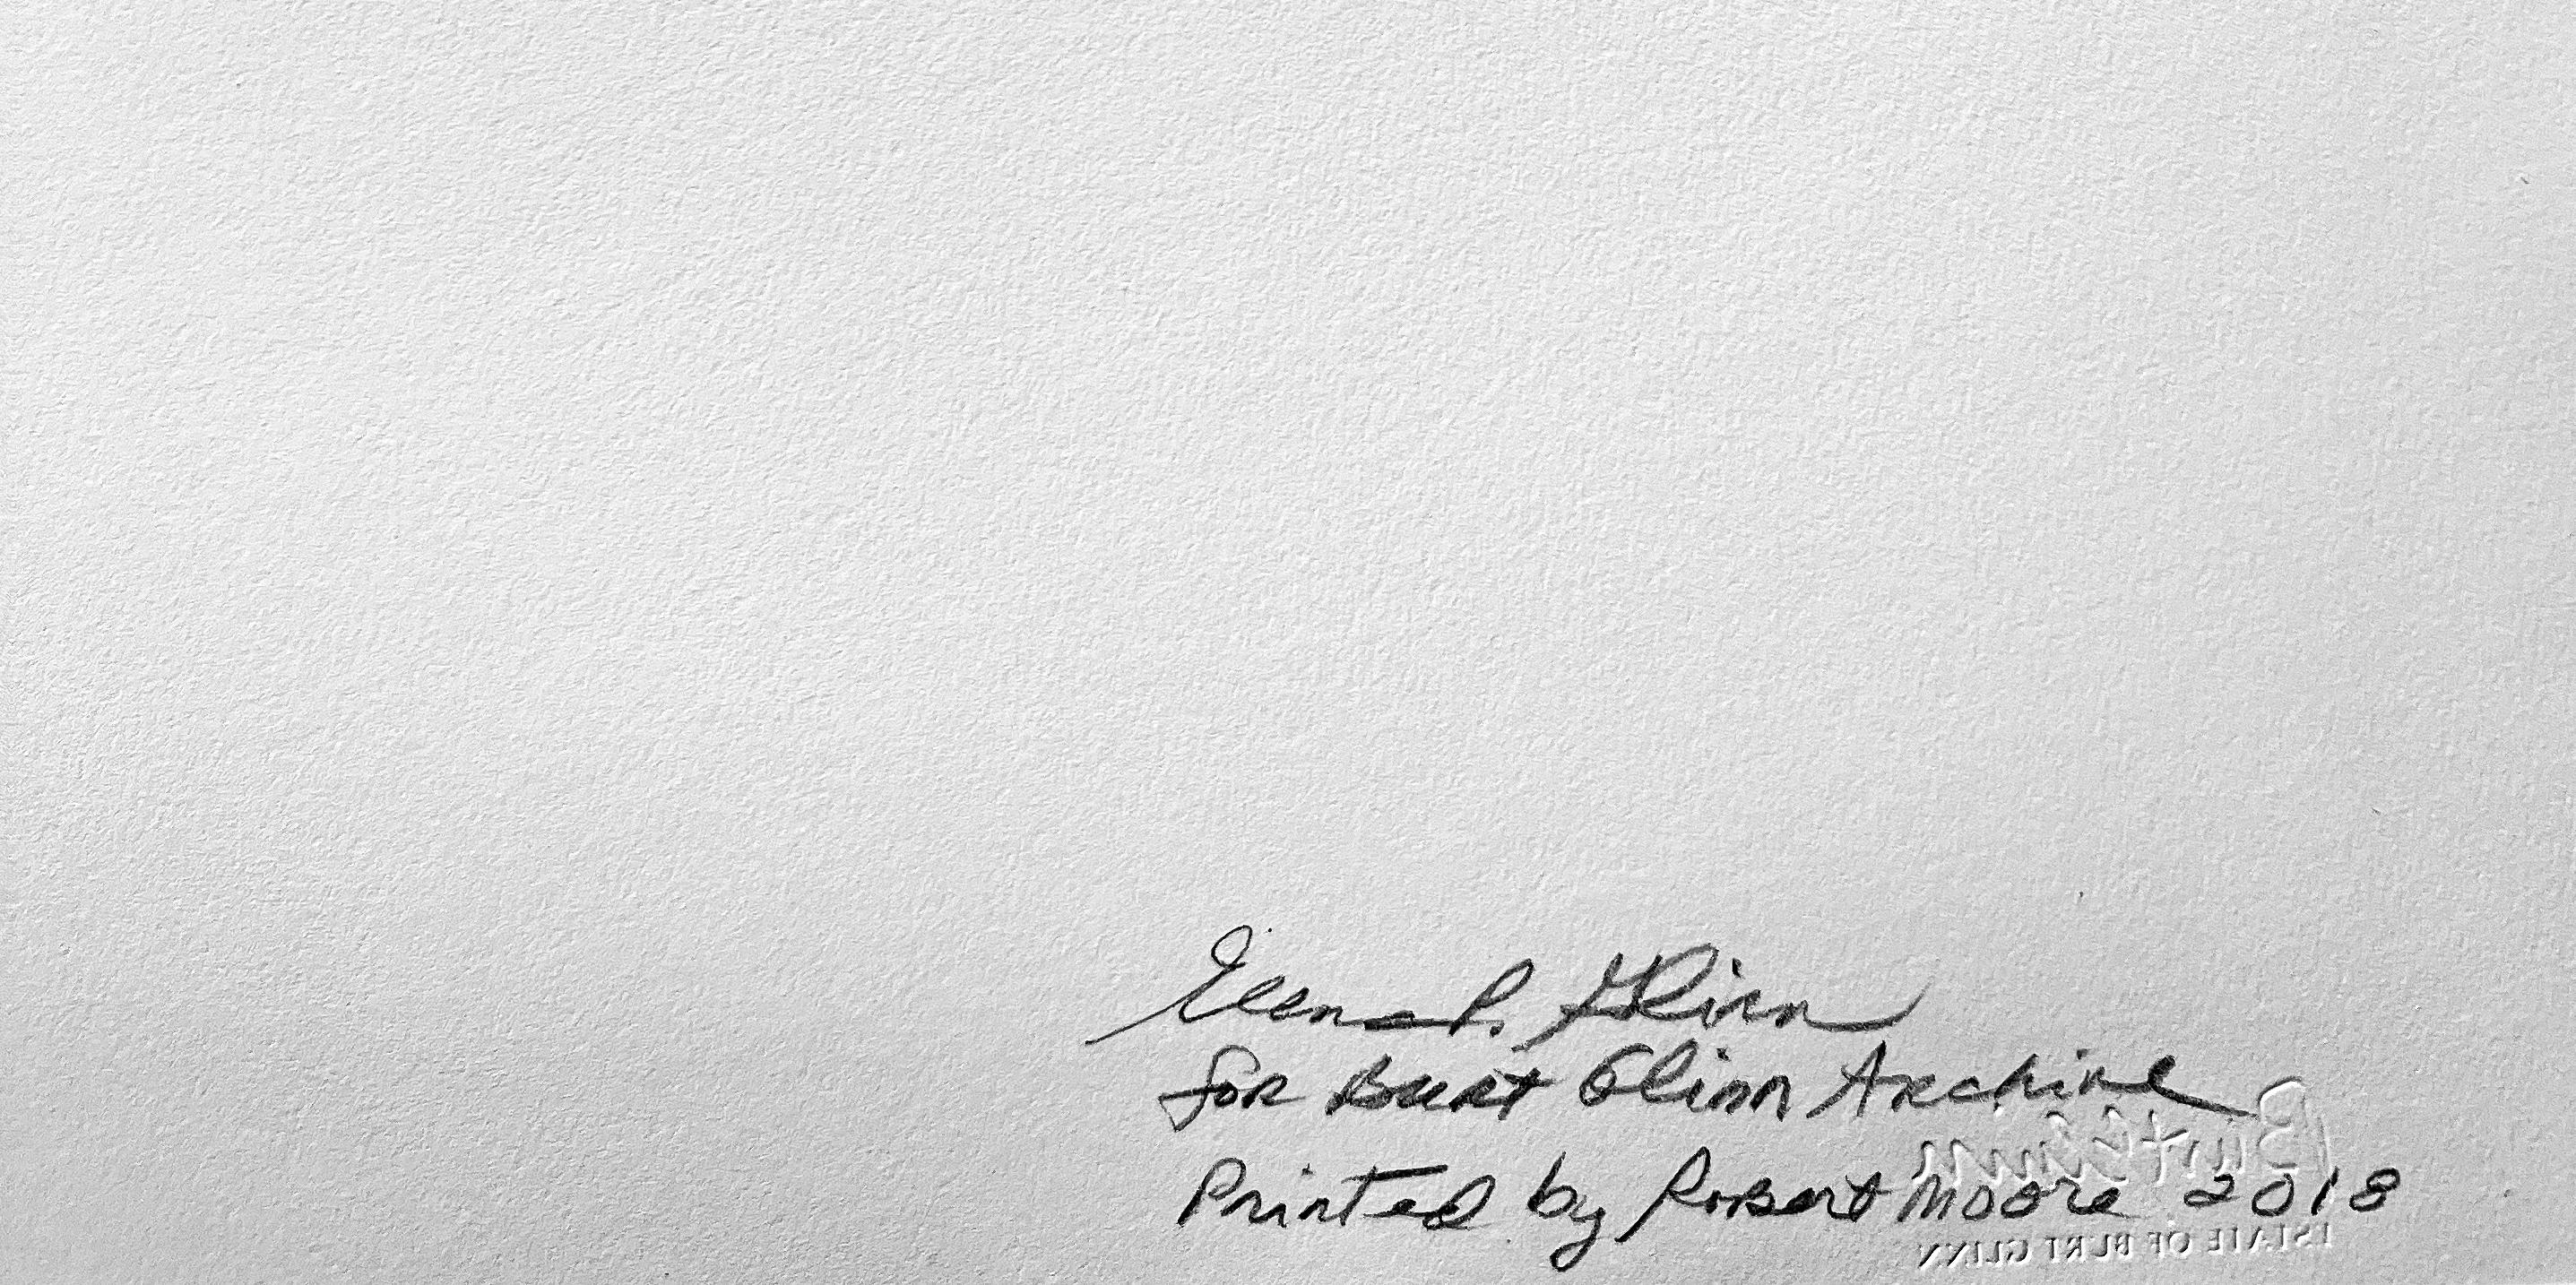 Elena P. Glinn
for Burt Glinn Archive
Burt Glinn
Printed by Robert Moore 2018
ESTATE OF BURT GLINN